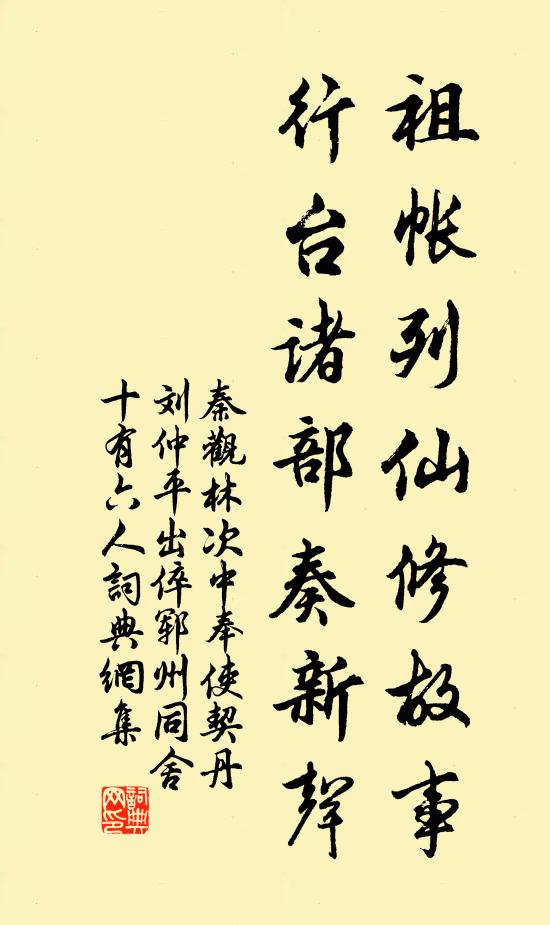 祖帐列仙修故事
行台诸部奏新聲
秦觀林次中奉使契丹
刘仲平出倅郓州同舍
十有六人詞典網集
詞典
网印